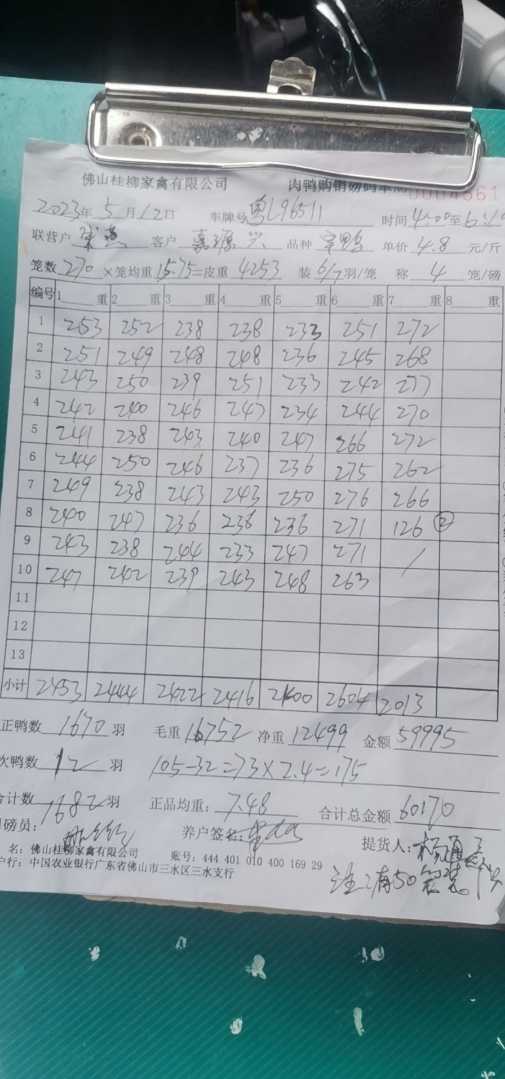 佛山桂柳家禽有限公司 肉鸭购销磅码单 0004661
2023年 5月12日 车牌号 粤L96511 时间 4:00至6:10
联营户 客户 嘉源兴 品种 单价 4.8 元/斤
笼数 270 ×笼均重 15.75=皮重 4253 装 6/7 羽/笼 称 4 笼/磅
编号 1 重 2 重 3 重 4 重 5 重 6 重 7 重 8 重
1 253 252 238 238 233 251 272
2 251 249 248 248 236 245 268
3 243 250 239 251 233 242 277
4 242 240 246 247 234 244 270
5 241 238 243 240 247 266 272
6 244 250 246 237 236 275 262
7 249 238 243 243 250 276 266
8 240 247 236 236 236 271 126 ②
9 243 238 244 233 247 271 /
10 247 242 239 243 248 263
11
12
13
小计 2453 2444 2422 2416 2400 2604 2013
正鸭数 1670 羽 毛重 16752 净重 12499 金额 59995
次鸭数 12 羽 105-32=73×2.4=175
合计数 1682 羽 正品均重: 7.48 合计总金额 60170
磅员: 养户签名: 提货人:
名: 佛山桂柳家禽有限公司 账号: 444 401 010 400 169 29
户行: 中国农业银行广东省佛山市三水区三水支行
注:满50笼